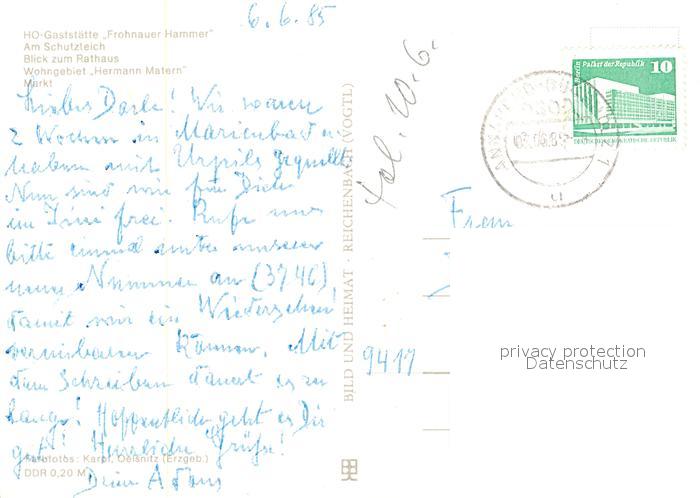 6.6.85
HO-Gaststätte „Frohnauer Hammer"
Am Schutzteich
Blick zum Rathaus
Wohngebiet „Hermann Matern"
Markt
Liebes Dorle! Wir waren
2 Wochen in Marienbad u.
haben mit Urpils gequellt
Nun sind wir für Dich
im Juni frei. Rufe uns
bitte einmal unter unserer
neuen Nummer an (3746),
damit wir ein Wiedersehen
vereinbaren können. Mit
dem Schreiben dauert es zu
lange! Hoffentlich geht es Dir
gut! Herzliche Grüße!
Farbfotos: Karpf, Oelsnitz (Erzgeb.)
DDR 0,20 M
Dein
BILD UND HEIMAT · REICHENBACH (VOGTL)
tel. 10.6.
Berlin Palast der Republik
10
DEUTSCHE DEMOKRATISCHE REPUBLIK
Frau
9417
privacy protection
Datenschutz